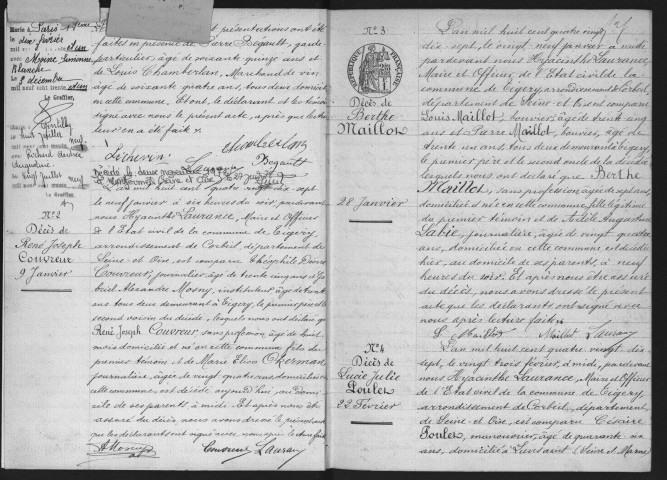 Marié à Paris
le dix février
avec Moine Simonne
Blanche
le 8 décembre
mil neuf cent
Le Greffier,
Chantilly
huit juillet
neuf
Richard Andrée
Augustine
le vingt juillet neuf
Le Greffier,
présentation ont été
faites en présence de Pierre Bégault, garde
particulier, âgé de soixante quinze ans et
de Louis Chamberlan, Marchand de vin
âgé de soixante quatre ans, tous deux domiciliés
en cette commune. Et ont, le déclarant et les témoins
signé avec nous le présent acte, après que lec-
ture en a été faite.
Léchevin
Chamberlan
Bégault
Décédé le deux novembre
à Montfermeil (Seine et Oise)
No 2
Décès de
René Joseph
Couvreur
9 Janvier
L'an mil huit cent quatre vingt dix sept
le neuf janvier à six heures du soir, pardevant
nous Hyacinthe Laurance, Maire et Officier
de l'Etat civil de la commune de Tigery,
arrondissement de Corbeil département de
Seine et Oise, ont comparu Théophile Désiré
Couvreur, journalier, âgé de trente cinq ans et Ga-
briel Alexandre Mosny, instituteur, âgé de trente
ans, tous deux demeurant à Tigery, le premier père et le
second voisin du décédé, lesquels nous ont déclaré que
René Joseph Couvreur sans profession, âgé de huit
mois domicilié et né en cette commune fils du
premier témoin et de Marie Elisa
journalière, âgée de vingt quatre ans domiciliée en
cette commune, est décédé aujourd'hui, au domi-
cile de ses parents, à midi. Et après nous être
assuré du décès, nous avons dressé le présent acte
que les déclarants ont signé avec nous après lecture faite.
AMosny
Couvreur
Laurance
No 3
RÉPUBLIQUE FRANÇAISE
Décès de
Berthe
Maillot
28 Janvier
L'an mil huit cent quatre vingt
dix-sept, le vingt neuf janvier à midi
pardevant nous Hyacinthe Laurance,
Maire et Officier de l'Etat civil de la
commune de Tigery arrondissement de Corbeil,
département de Seine et Oise ont comparu
Louis Maillot, bouvier, âgé de trente cinq
ans et Pierre Maillot, bouvier, âgé de
trente un ans, tous deux demeurant à Tigery,
le premier père et le second oncle de la décédée
lesquels nous ont déclaré que Berthe
Maillot, sans profession, âgée de sept ans,
domiciliée et née en cette commune fille légitime
du premier témoin et de Adèle Augustine
Labie, journalière, âgée de vingt quatre
ans, domiciliée en cette commune est décédée
hier, au domicile de ses parents, à neuf
heures du soir. Et après nous être assuré
du décès, nous avons dressé le présent
acte que les déclarants ont signé avec
nous après lecture faite.
L. Maillot Maillot Laurance
No 4
Décès de
Lucie Julie
Poulet
22 Février
L'an mil huit cent quatre vingt dix-
sept, le vingt trois février, à midi, pardevant
nous Hyacinthe Laurance, Maire et Officier
de l'Etat civil de la commune de Tigery,
arrondissement de Corbeil, département
de Seine et Oise, est comparu Césaire
Poulet, manouvrier, âgé de quarante un
ans, domicilié à Lieusaint (Seine et Marne)